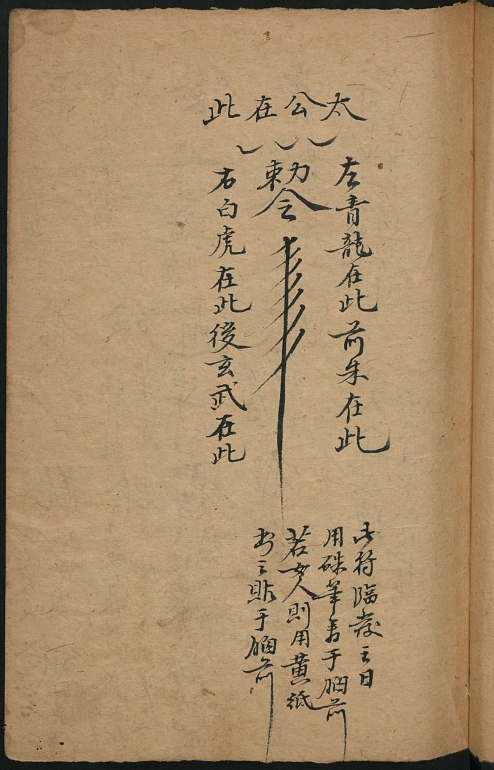 太公在此
勅令
左青龍在此前朱在此
右白虎在此後玄武在此
此符臨發之日
用硃筆書于胸前
若女人則用黄紙
書之貼于胸前